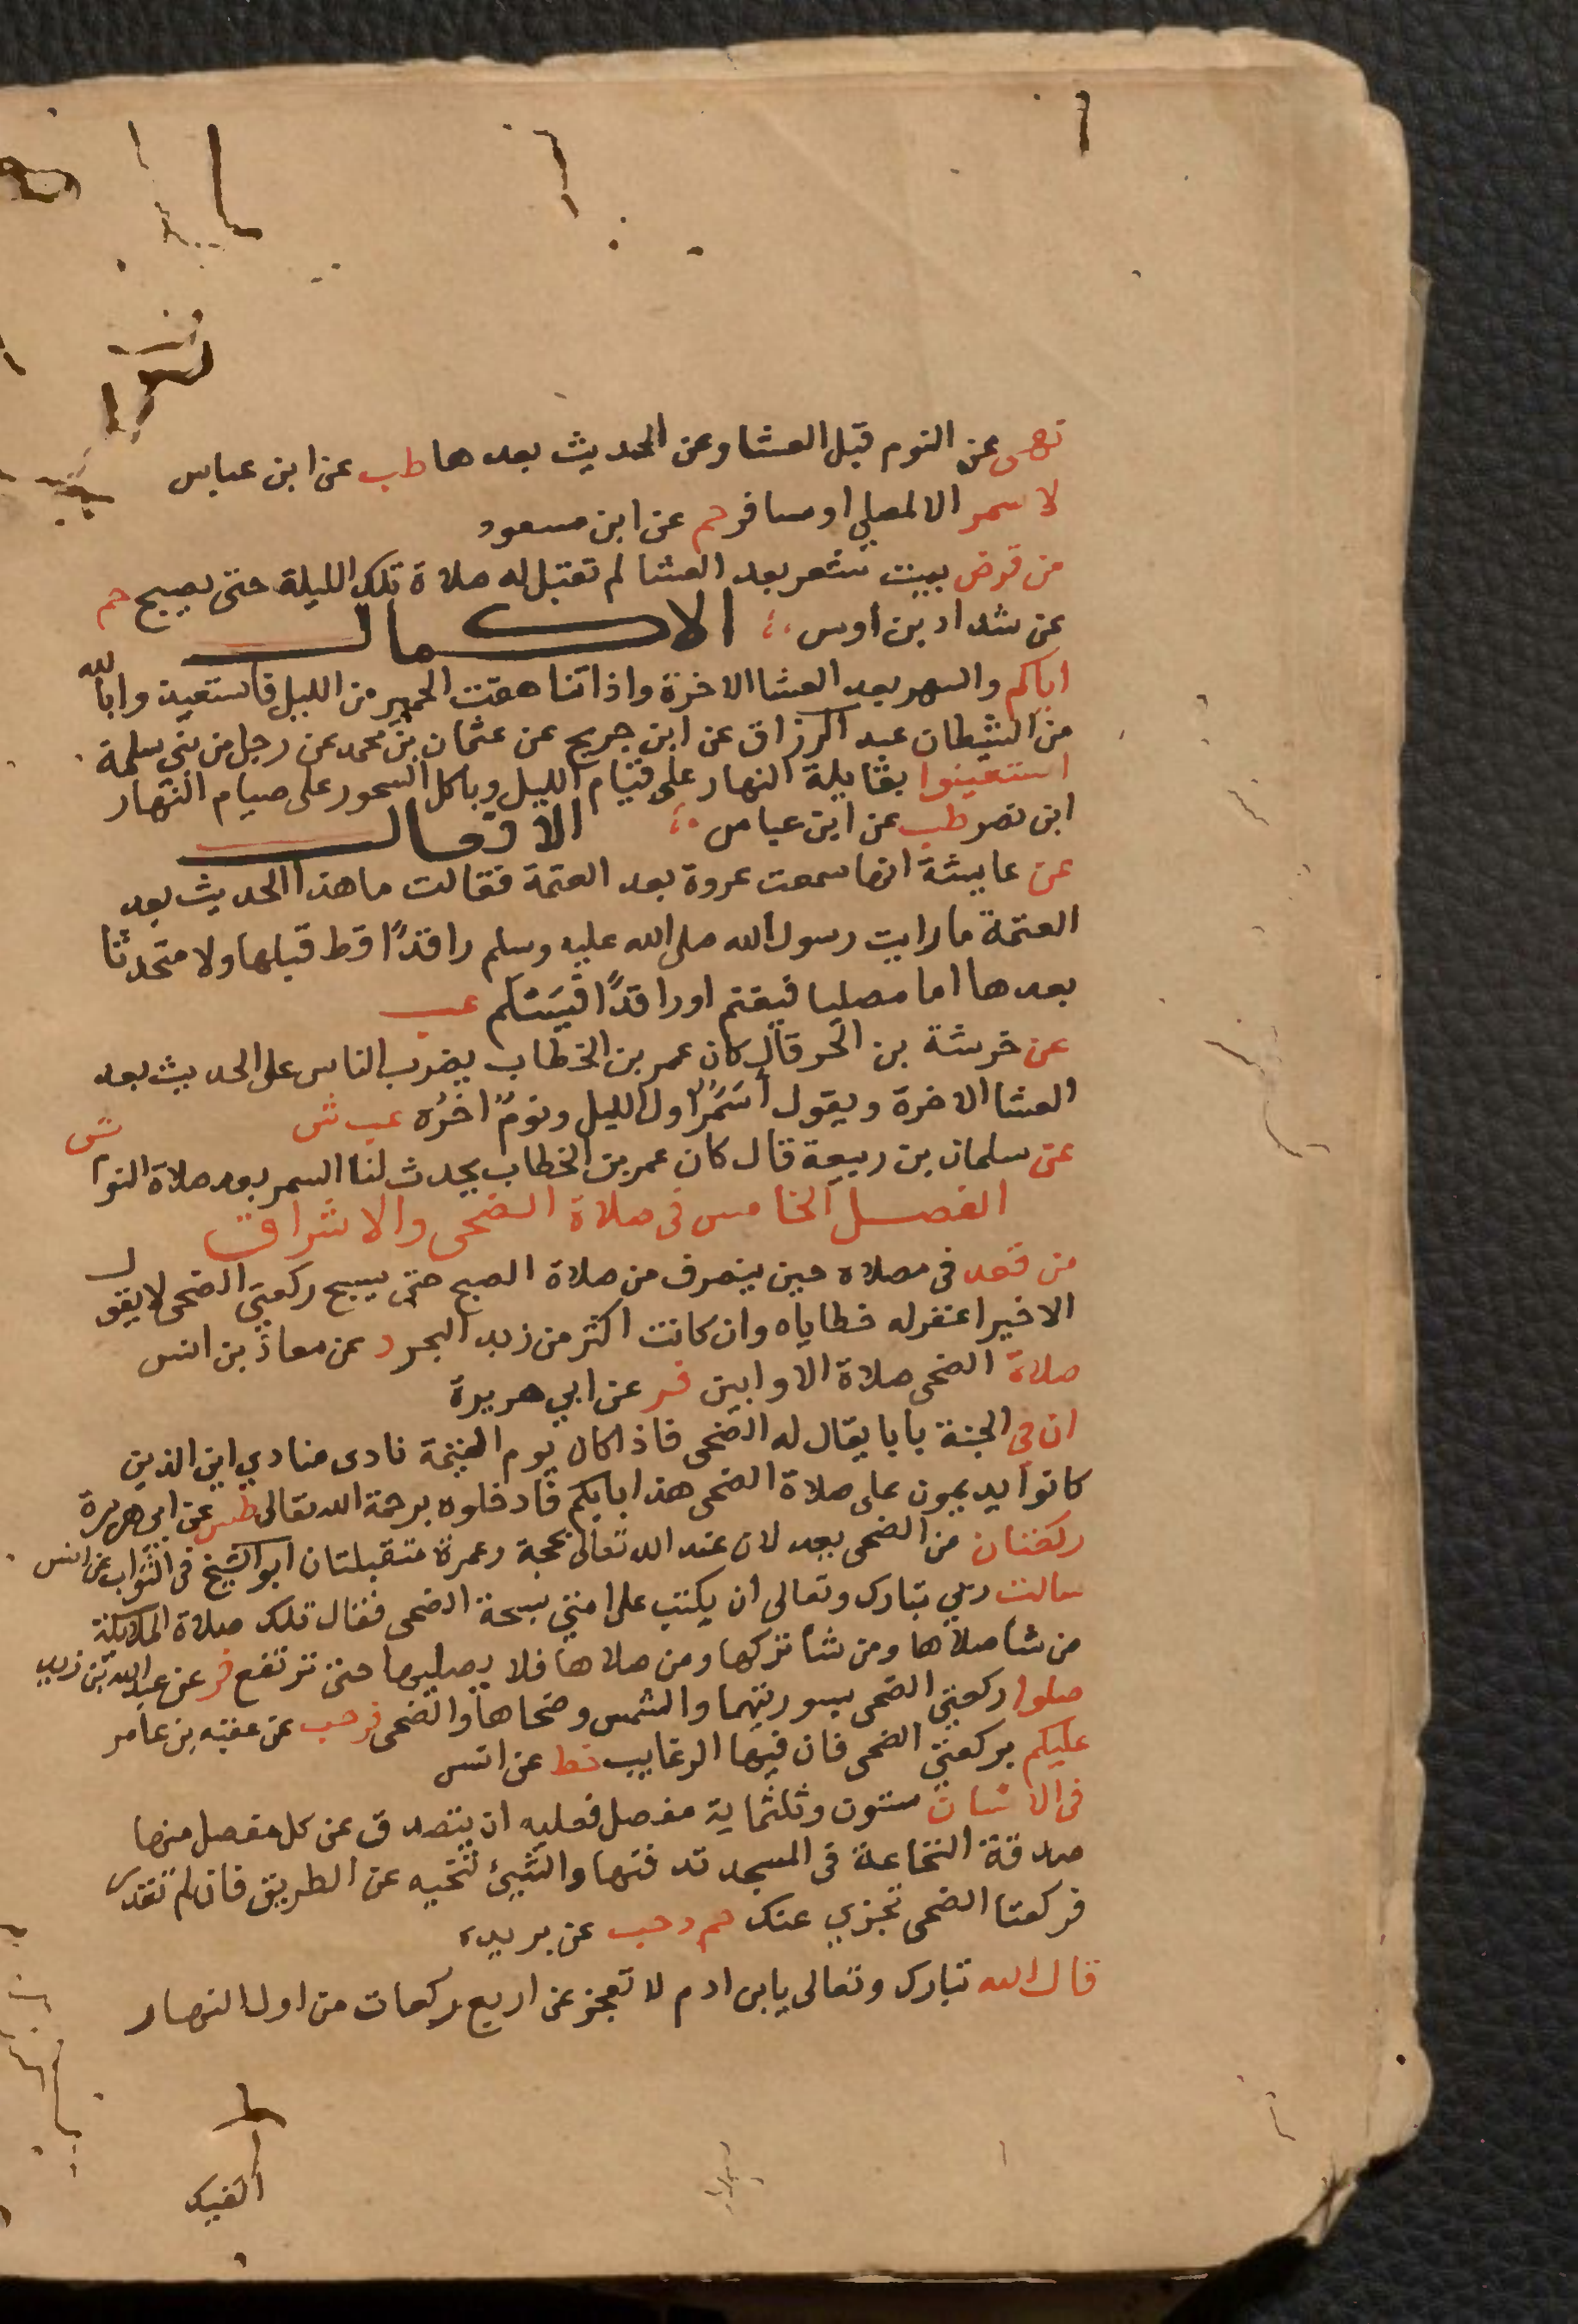 نهى عن النوم قبل العشا وعن الحديث بعدها طب عن ابن عباس
لا سمر الا لمصلي او مسافر حم عن ابن مسعود
من قرض بيت شعر بعد العشا لم تقبل له صلاة تلك الليلة حتى يصبح حم
عن شداد بن اوس الاكمال
اياكم والسهر بعد العشا الاخرة واذا تناهقت الحمير من الليل فاستعيذوا بالله
من الشيطان عبد الرزاق عن ابن جريج عن عثمان بن محمد عن رجل من بني سلمة
استعينوا بقايلة النهار على قيام الليل وباكل السحور على صيام النهار
ابن نصر طب عن ابن عباس الافعال
عن عايشة انها سمعت عروة بعد العتمة فقالت ما هذا الحديث بعد
العتمة ما رايت رسول الله صلى الله عليه وسلم راقدًا قط قبلها ولا متحدثا
بعدها اما مصليا فيغتم او راقدًا فيسلم عب
عن خرشة بن الحر قال كان عمر بن الخطاب يضرب الناس على الحديث بعد
العشا الاخرة ويقول أسَمَرٌ اول الليل ونومٌ اخرُه عب ش
عن سلمان بن ربيعة قال كان عمر بن الخطاب يجدب لنا السمر بعد صلاة النوم ش
الفصل الخامس في صلاة الضحى والاشراق
من قعد في مصلاه حين ينصرف من صلاة الصبح حتى يسبح ركعتي الضحى لا يقول
الا خيرا غفر له خطاياه وان كانت اكثر من زبد البحر د عن معاذ بن انس
صلاة الضحى صلاة الاوابين فر عن ابي هريرة
ان في الجنة بابا يقال له الضحى فاذا كان يوم القيمة نادى منادي اين الذين
كانوا يديمون على صلاة الضحى هذا بابكم فادخلوه برحمة الله تعالى طس عن ابي هريرة
ركعتان من الضحى يعدلان عند الله تعالى بحجة وعمرة متقبلتان ابو الشيخ في الثواب عن انس
سالت ربي تبارك وتعالى ان يكتب على امتي سبحة الضحى فقال تلك صلاة الملايكة
من شا صلاها ومن شا تركها ومن صلاها فلا يصليها حتى ترتفع فر عن عبد الله بن زيد
صلوا ركعتي الضحى بسورتيهما والشمس وضحاها والضحى فر حب عن عقبه بن عامر
عليكم بركعتي الضحى فان فيها الرغايب خط عن انس
في الانسان ستون وثلثماية مفصل فعليه ان يتصدق عن كل مفصل منها
صدقة النخاعة في المسجد تدفنها والشيئ تنحيه عن الطريق فان لم تقدر
فركعتا الضحى تجزي عنك حم د حب عن بريده
قال الله تبارك وتعالى يا ابن ادم لا تعجز عن اربع ركعات من اول النهار